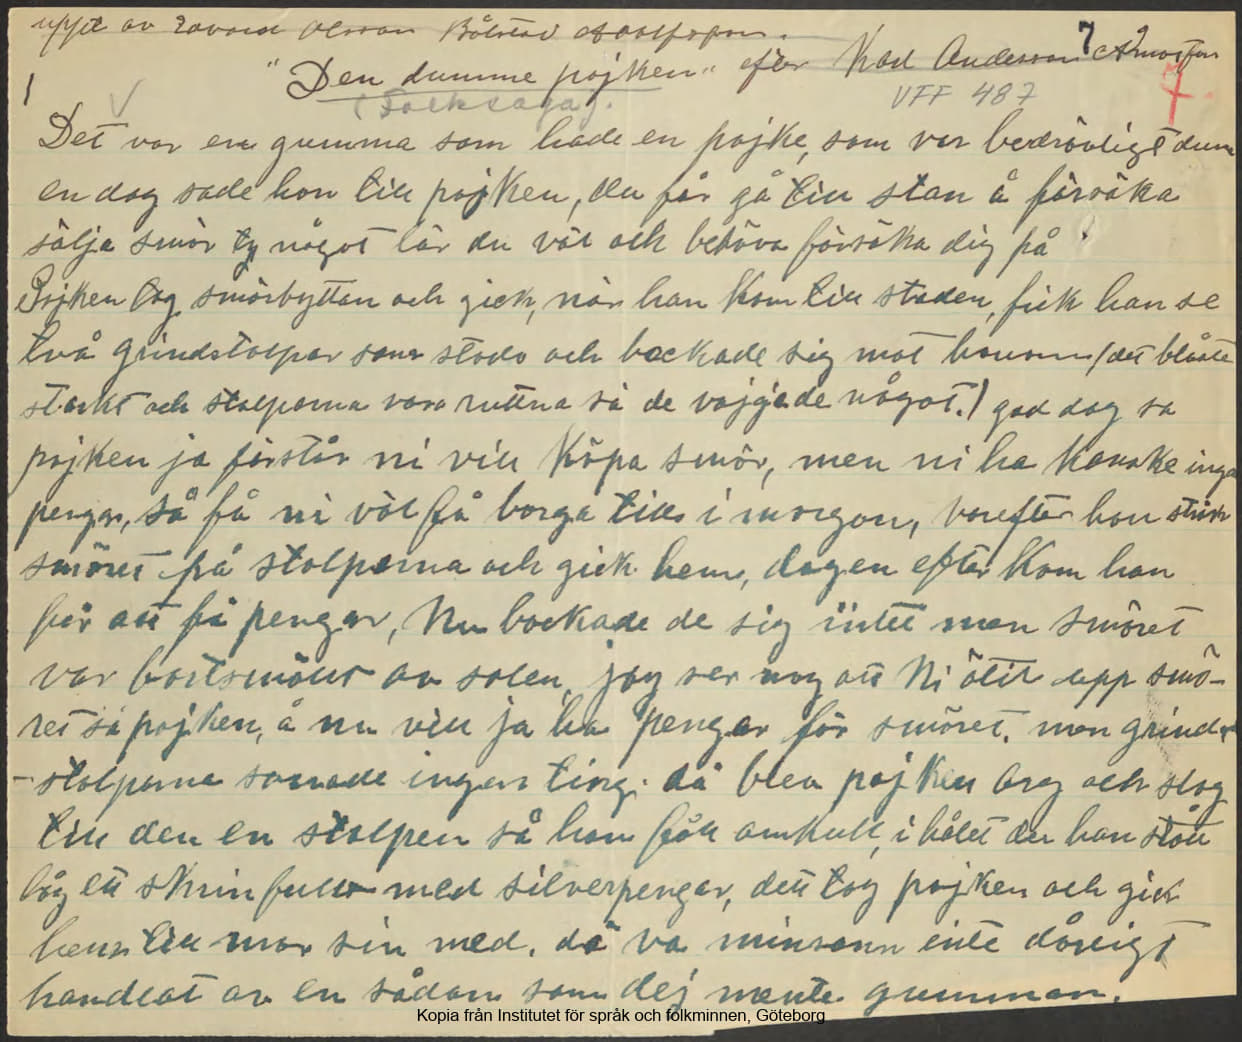 uppt av Edvard Olsson Bålstad
7
"Den dumme pojken" efter Karl Andersson
1
(Folksaga).
VFF 487
7
Det var en gumma som hade en pojke, som var bedrövligt dum
en dag sade hon till pojken, du får gå till stan å försöka
sälja smör ty något lär du väl och behöva försöka dig på
Pojken tog smörbyttan och gick, när han kom till staden, fick han se
två grindstolpar som stodo och bockade sig mot honom (det blåste
starkt och stolparna voro ruttna så de vajjade något.) god dag sa
pojken ja förstår ni vill köpa smör, men ni ha kanske inga
pengar, så få ni väl få borga till i morgon, varefter han strök
smöret på stolparna och gick hem, dagen efter kom han
för att få pengar, Nu bockade de sig intet men smöret
var bortsmält av solen, jag ser nog att Ni ätit upp smö-
ret sa pojken, å nu vill ja ha pengar för smöret. men grind-
-stolparna svarade ingenting. då blev pojken arg och slog
till den en stolpen så han föll omkull, i hålet der han stått
låg ett skrin fullt med silverpengar, dett tog pojken och gick
hem till mor sin med. dä va minsann inte dåligt
handlat av en sådan som dej mente gumman.
Kopia från Institutet för språk och folkminnen, Göteborg